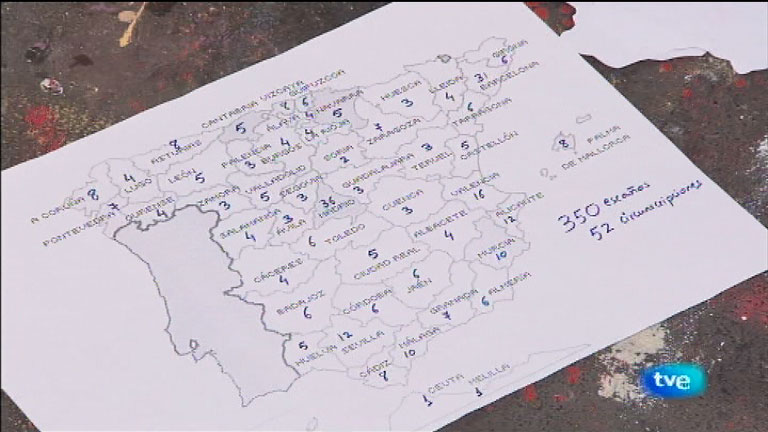 GIRONA
6
GUIPUZCOA
VIZCAYA
CANTABRIA
8 6
5
HUESCA
3
LLEIDA
4
31
BARCELONA
NAVARRA
5
ÁLAVA
4
LA RIOJA
4
ASTURIAS
8
TARRAGONA
6
ZARAGOZA
7
PALENCIA
3
BURGOS
4
SORIA
2
LEÓN
5
LUGO
4
A CORUÑA
8
PONTEVEDRA
7
OURENSE
4
ZAMORA
3
VALLADOLID
5
SEGOVIA
3
GUADALAJARA
3
TERUEL
3
CASTELLÓN
5
8
PALMA
DE MALLORCA
SALAMANCA
4
ÁVILA
3
36
MADRID
CUENCA
3
VALENCIA
16
350 escaños
52 circunscripciones
TOLEDO
6
ALBACETE
4
ALICANTE
12
CÁCERES
4
CIUDAD REAL
5
MURCIA
10
BADAJOZ
6
CÓRDOBA
6
JAÉN
6
GRANADA
7
ALMERÍA
6
HUELVA
5
SEVILLA
12
MÁLAGA
10
CÁDIZ
8
CEUTA
1
MELILLA
1
tve